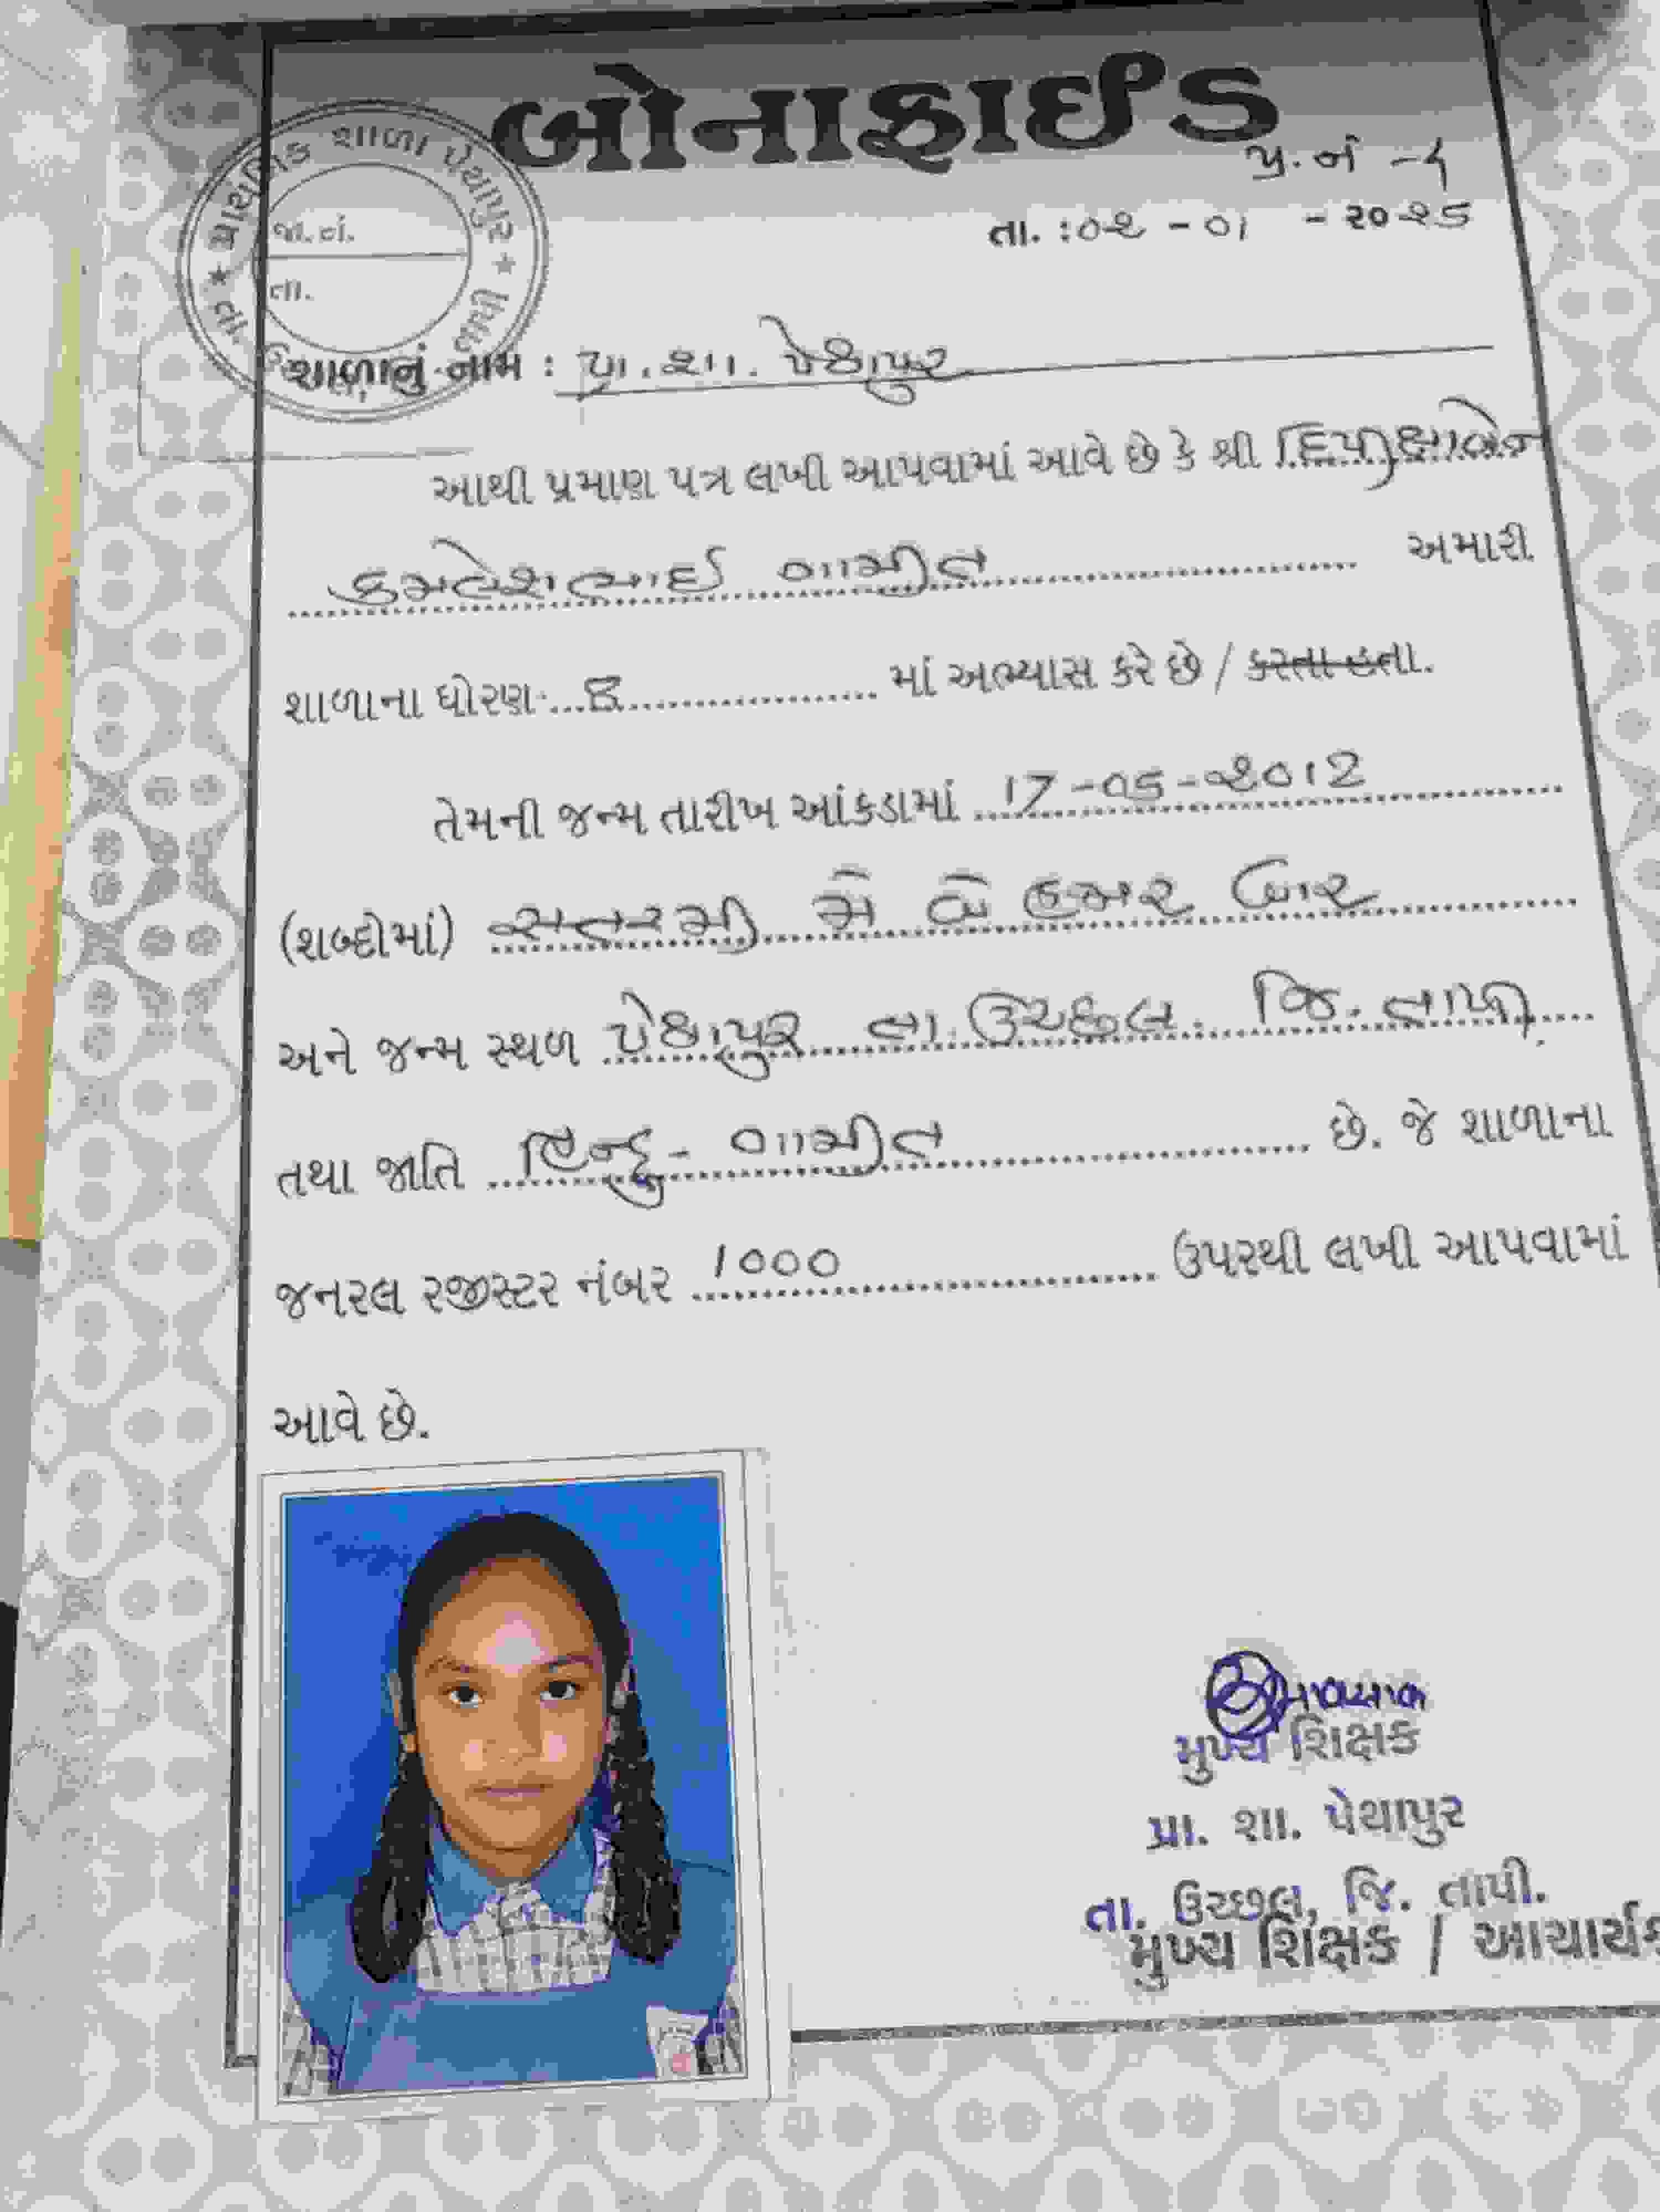 બોનાફાઈડ
પ્ર.નં -૮
પ્રાથમિક શાળા પેથાપુર
જા.નં.
તા.
તા. : ૦૨ - ૦૧ - ૨૦૨૬
શાળાનું નામ : પ્રા. શા. પેથાપુર
આથી પ્રમાણ પત્ર લખી આપવામાં આવે છે કે શ્રી
કમલેશભાઈ ગામીત અમારી
શાળાના ધોરણ માં અભ્યાસ કરે છે / કરતા હતા.
તેમની જન્મ તારીખ આંકડામાં 17-૦૫-૨૦12
(શબ્દોમાં) સતરમી મે બે હજાર બાર
અને જન્મ સ્થળ પેથાપુર તા. ઉચ્છલ. જિ. તાપી.
તથા જાતિ હિન્દુ - ગામીત છે. જે શાળાના
જનરલ રજીસ્ટર નંબર 1000 ઉપરથી લખી આપવામાં
આવે છે.
મુખ્ય શિક્ષક
પ્રા. શા. પેથાપુર
તા. ઉચ્છલ, જિ. તાપી.
મુખ્ય શિક્ષક / આચાર્ય